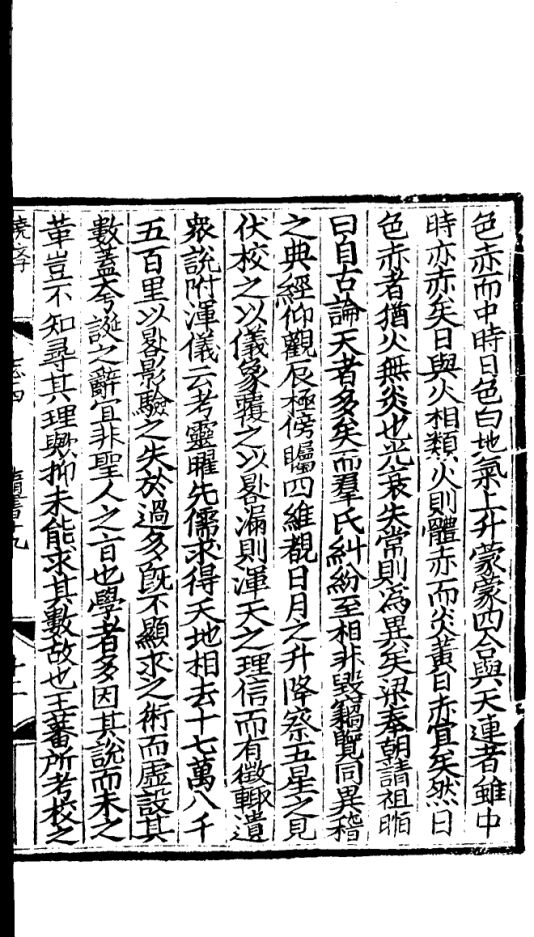 色赤而中時日色白地氣上升蒙蒙四合與天連者雖中
時亦赤矣日與火相類火則體赤而炎黃日赤宜矣然日
色赤者猶火無炎也光衰失常則為異矣梁奉朝請祖暅
曰自古論天者多矣而羣氏糾紛至相非毀竊覽同異稽
之典經仰觀辰極傍矚四維覩日月之升降察五星之見
伏校之以儀象覆之以晷漏則渾天之理信而有徵輒遺
衆說附渾儀云考靈曜先儒求得天地相去十七萬八千
五百里以晷影驗之失於過多旣不顯求之術而虛設其
數蓋夸誕之辭宜非聖人之言也學者多因其說而未之
革豈不知尋其理歟抑未能求其數故也王蕃所考校之
志四 隋書十九